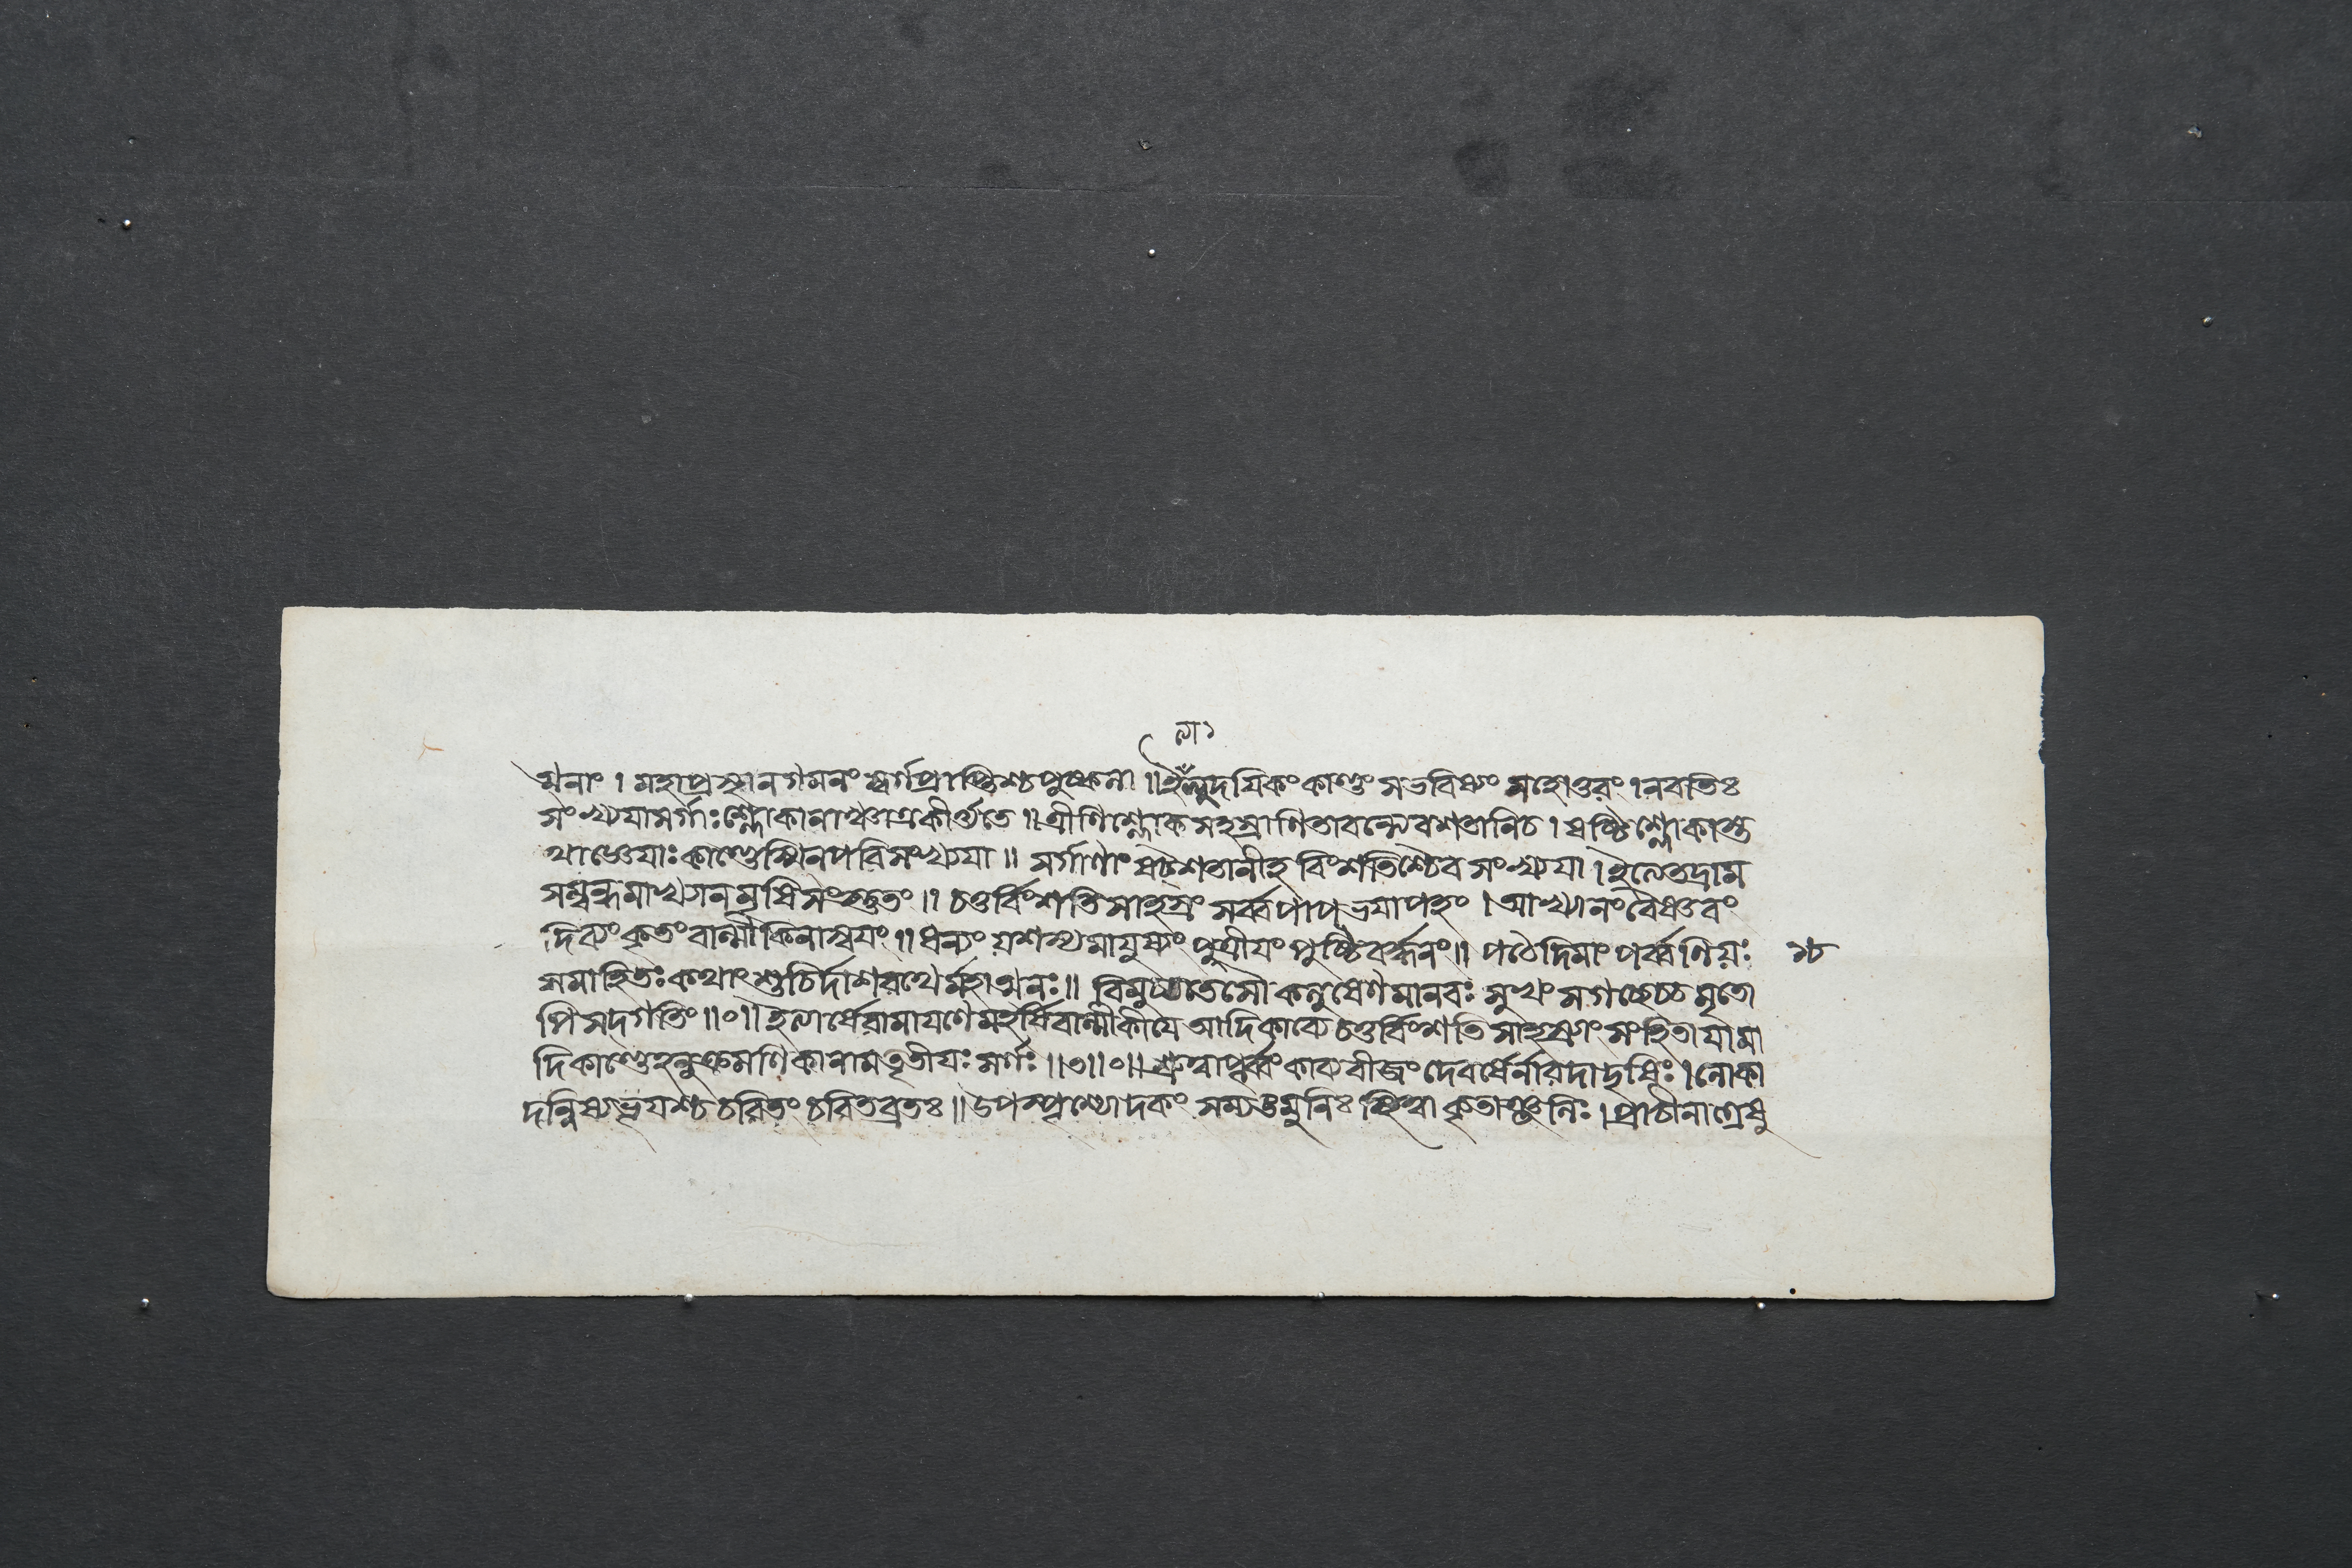 ত্মনাং । মহাপ্রস্থানগমনং স্বর্গপ্রাপ্তিশ্চপুষ্কলা ॥ ইত্যেতদুদযিকংকাণ্ডং সভবিষ্যং সহোত্তরং । নবতিঃ
সংখ্যযাসর্গাঃশ্লোকানাঞ্চাত্রকীর্ত্ত্যতে ॥ ত্রীণিশ্লোকসহস্রাণিতাবন্ত্যেবশতানিচ । ষষ্টিশ্লোকাস্ত
থাজ্ঞেযাঃকাণ্ডেস্মিন্পরিসংখ্যযা ॥ সর্গাণাং ষট্শতানীহ বিংশতিশ্চৈব সংখ্যযা । ইত্যেতদ্রাম
সম্বন্ধমাখ্যানমৃষিসংস্তুতং ॥ চতুর্বিংশতিসাহস্রং সর্ব্বপাপভযাপহং । আখ্যানংবৈষ্ণবং
দিব্যংকৃতংবাল্মীকিনাস্বযং ॥ ধন্যংযশস্যমাযুষ্যংপুত্রীযংপুষ্টিবর্দ্ধনং ॥ পঠেদিমাংপর্ব্বণিযঃ
সমাহিতঃকথাংশুচির্দাশরথের্মহাত্মনঃ ॥ বিমুচ্যতেসৌকলুষেণমানবঃসুখংসগচ্ছেচ্চমৃতো
পিসদ্গতিং ॥০॥ ইত্যার্ষেরামাযণেমহর্ষিবাল্মীকীযে আদিকাব্যেচতুর্বিংশতিসাহস্র্যাংসংহিতাযামা
দিকাণ্ডেহনুক্রমণিকানামতৃতীযঃসর্গঃ ॥৩॥০॥ শ্রুত্বাপূর্ব্বংকাব্যবীজংদেবর্ষের্নারদাদৃষিঃ । লোকা
দন্বিষ্যভূযশ্চচরিতংচরিতব্রতঃ ॥ উপস্পৃশ্যোদকং সম্যঙ্মুনিঃ স্থিত্বা কৃতাঞ্জলিঃ । প্রাচীনাগ্রেষু